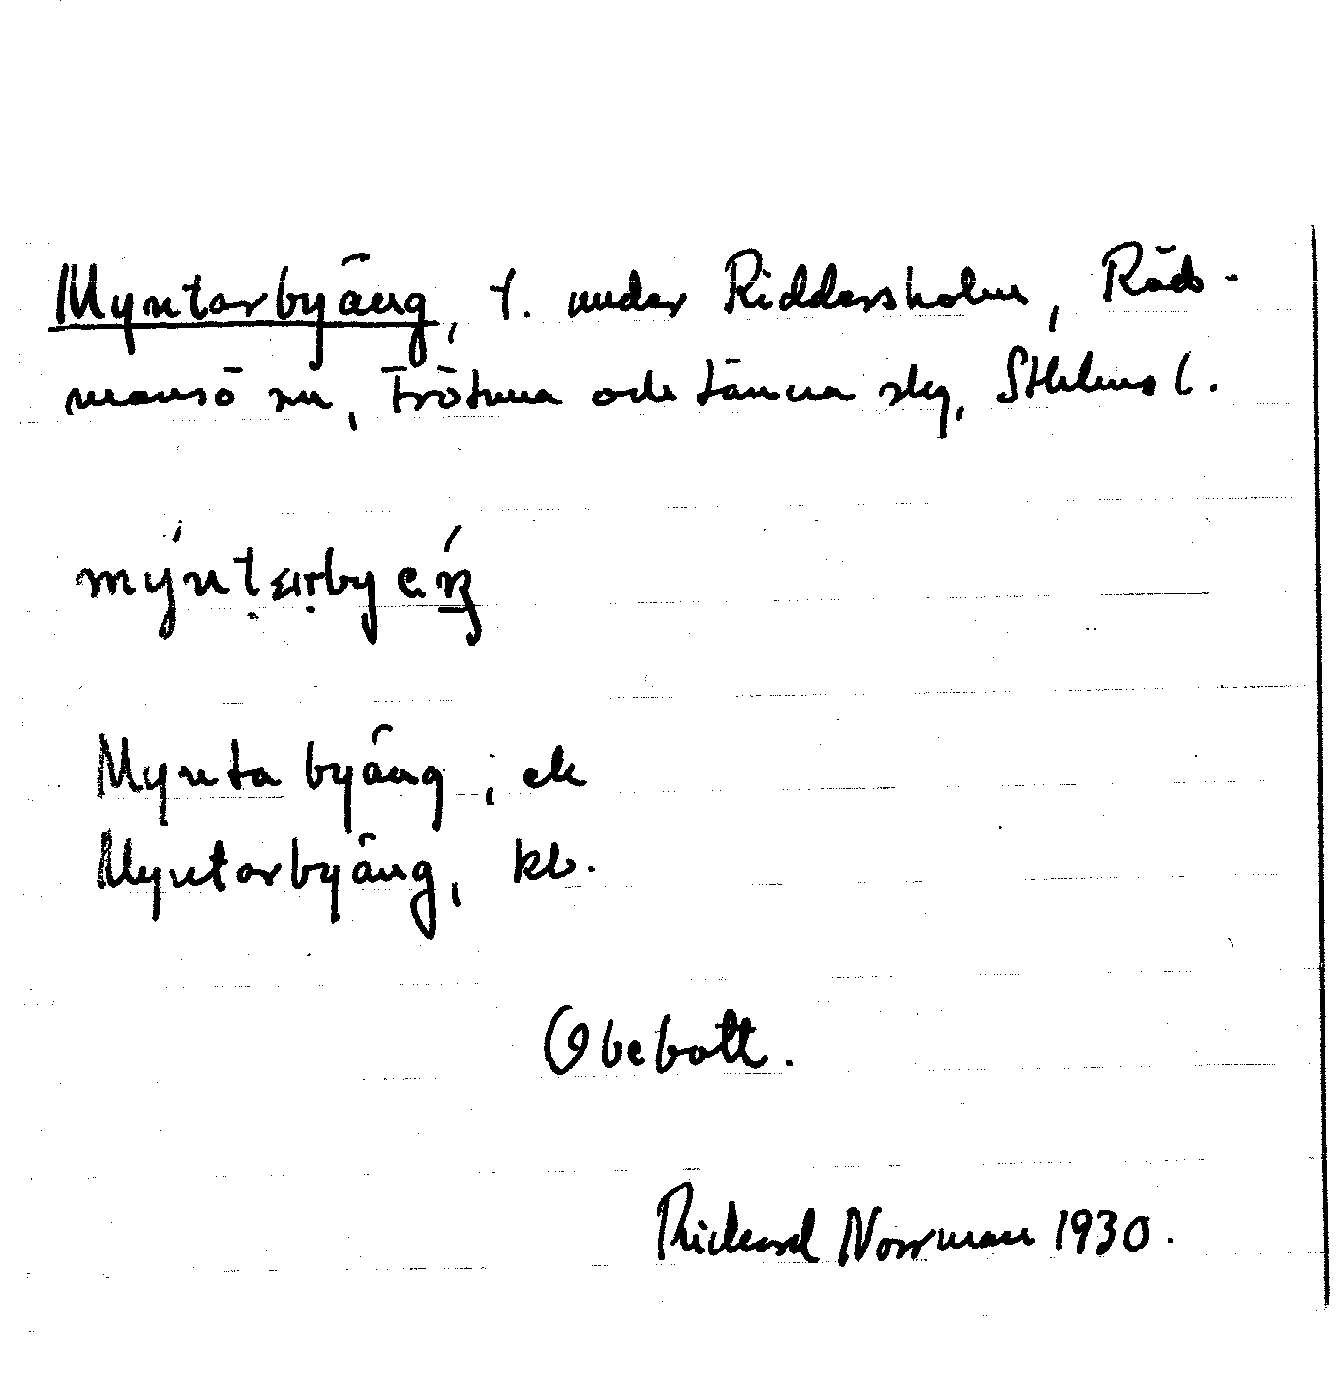 Myntarbyäng, t. under Riddersholm, Råd-
mansö sn, Frötuna och Länna slg, Sthlms l.
Myntabyäng, ek
Myntarbyäng, kb.
Obebott.
Rickard Norrman 1930.